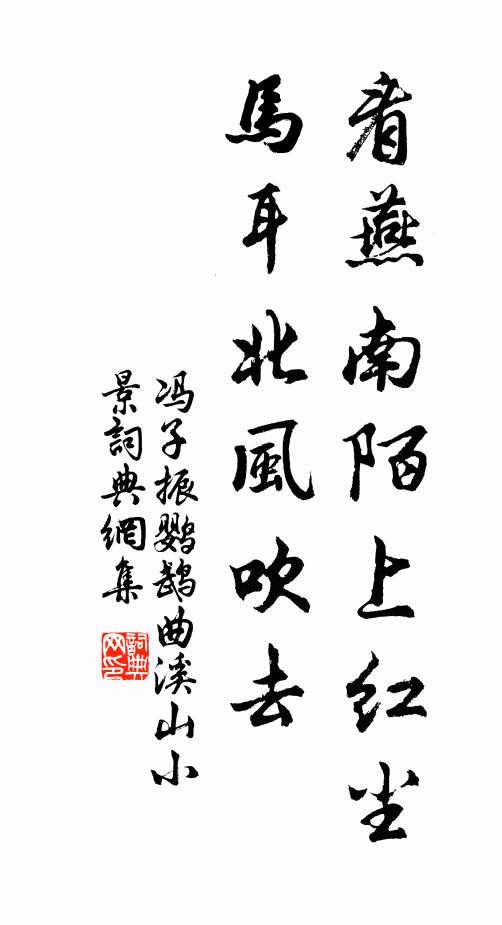 看燕南陌上红尘
馬耳北風吹去
冯子振鹦鹉曲溪山小
景詞典網集
詞典网印